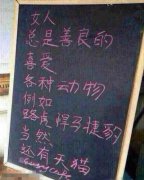 女人
总是善良的
喜爱
各种动物
例如
路虎 悍马 捷豹
当然
还有天猫